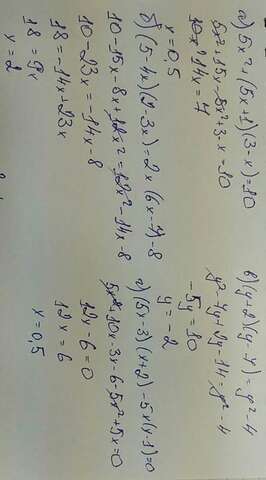 а) 5x² + (5x+1)(3-x) = 10
5x² + 15x - 5x² + 3 - x = 10
14x = 7
x = 0,5
б) (5-4x)(2-3x) = 2x(6x-7) - 8
10 - 15x - 8x + 12x² = 12x² - 14x - 8
10 - 23x = -14x - 8
18 = -14x + 23x
18 = 9x
x = 2
в) (y+2)(y-7) = y² - 4
y² - 7y + 2y - 14 = y² - 4
-5y = 10
y = -2
г) (5x-3)(x+2) - 5x(x-1) = 0
5x² + 10x - 3x - 6 - 5x² + 5x = 0
12x - 6 = 0
12x = 6
x = 0,5